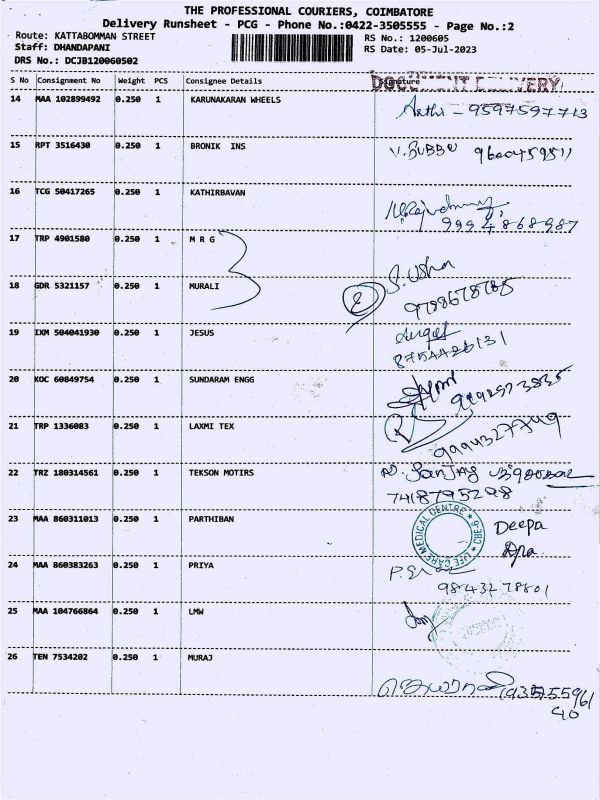 THE PROFESSIONAL COURIERS, COIMBATORE
Delivery Runsheet - PCG - Phone No.:0422-3505555 - Page No.:2
Route: KATTABOMMAN STREET
RS No.: 1200605
Staff: DHANDAPANI
RS Date: 05-Jul-2023
DRS No.: DCJB120060502
S No Consignment No Weight PCS Consignee Details Signature
DOCUMENT DELIVERY
14 MAA 102899492 0.250 1 KARUNAKARAN WHEELS
Aethi - 9597597713
15 RPT 3516430 0.250 1 BRONIK INS
V. BUBBU
16 TCG 50417265 0.250 1 KATHIRBAVAN
9994868987
17 TRP 4901580 0.250 1 M R G
18 GDR 5321157 0.250 1 MURALI
2 S. Usha
19 IXM 504041930 0.250 1 JESUS
20 KOC 60849754 0.250 1 SUNDARAM ENGG
21 TRP 1336083 0.250 1 LAXMI TEX
9994327749
22 TRZ 180314561 0.250 1 TEKSON MOTIRS
7418795298
23 MAA 860311013 0.250 1 PARTHIBAN
LIFE CARE MEDICAL CENTRE CBE-9
Deepa
24 MAA 860383263 0.250 1 PRIYA
9843278801
25 MAA 104766864 0.250 1 LMW
26 TEN 7534202 0.250 1 MURAJ